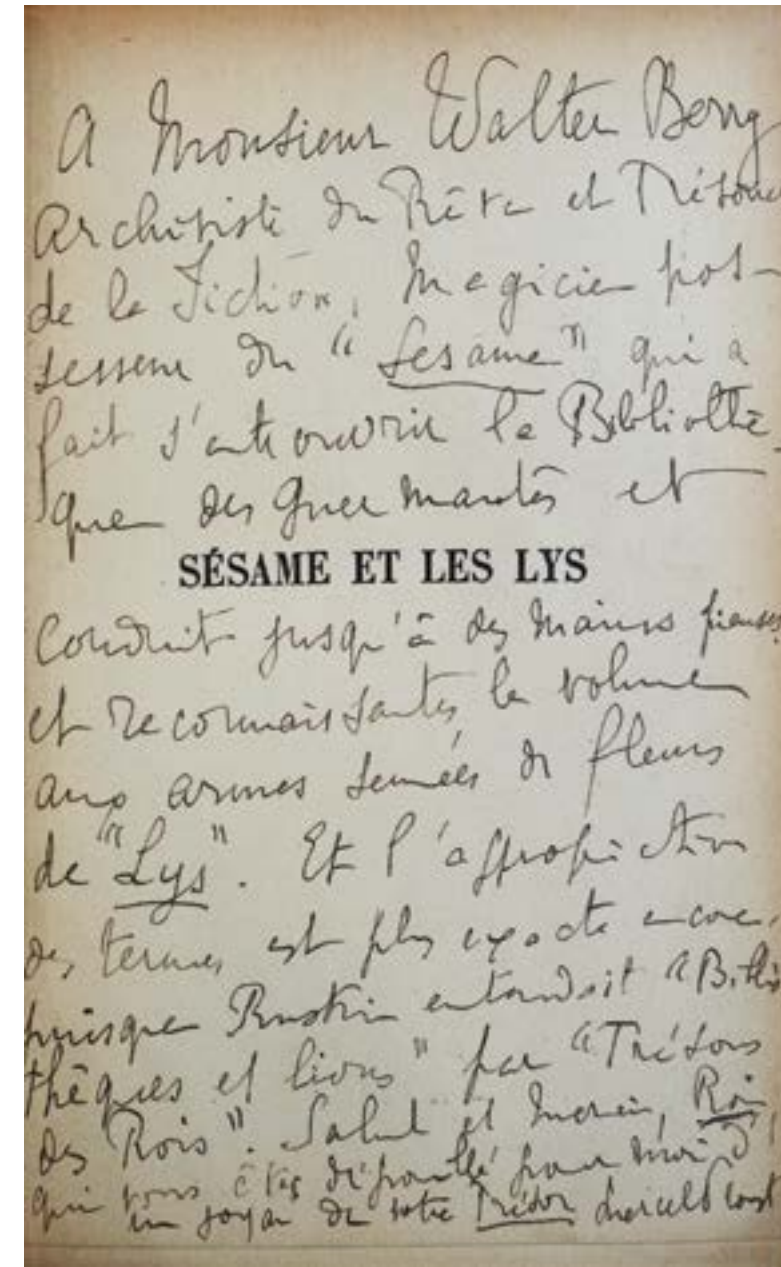 A Monsieur Walter Berry
Archiviste du Rêve et Trésorier
de la Fiction, Magicien pos-
sesseur du "Sesame" qui a
fait s'entrouvrir la Bibliothè-
que des Guermantes et
SÉSAME ET LES LYS
conduit jusqu'à des mains pieuses
et reconnaissantes, le volume
aux armes semées de fleurs
de "Lys". Et l'appropriation
des termes est plus exacte encore,
puisque Ruskin entendait "Biblio
thèques et livres" par "Trésors
des Rois". Salut et merci, Roi
qui vous êtes dépouillé pour moi d'
un joyau de votre Trésor Marcel Proust